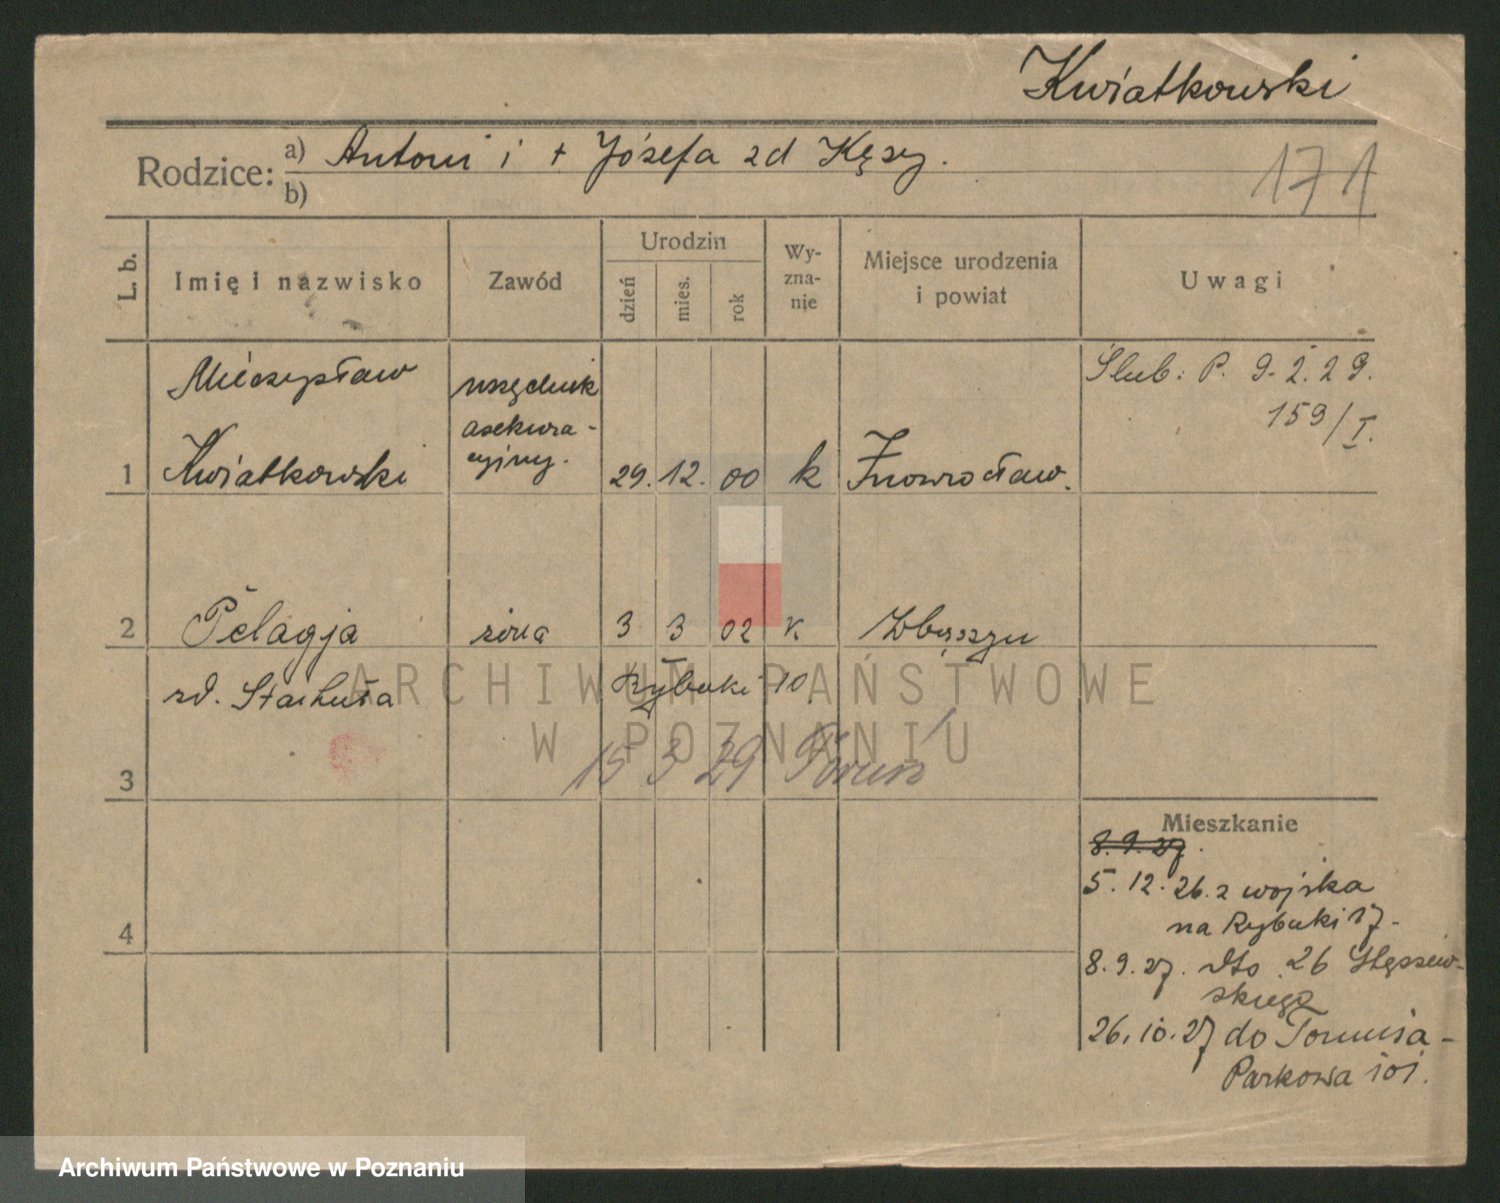 Kwiatkowski
Rodzice: a) Antoni i + Józefa zd Kęsy.
b)
171
L. b.
Imię i nazwisko
Zawód
Urodzin
dzień
mies.
rok
Wy-
zna-
nie
Miejsce urodzenia
i powiat
Uwagi
Mieczysław
urzędnik
Ślub: P. 9. 2. 29.
asekura-
159/I.
1 Kwiatkowski cyjny. 29. 12. 00 k Inowrocław.
2 Pelagja żona 3 3 02 k Zbąszyn
zd. Stachura Rybaki 10
15 3 29 Toruń
3
4
Mieszkanie
8. 9. 27.
5. 12. 26. z wojska
na Rybaki 17.
8. 9. 27. dto 26
skiego
26. 10. 27 do Torunia -
Parkowa 101.
ARCHIWUM PAŃSTWOWE
W POZNANIU
Archiwum Państwowe w Poznaniu